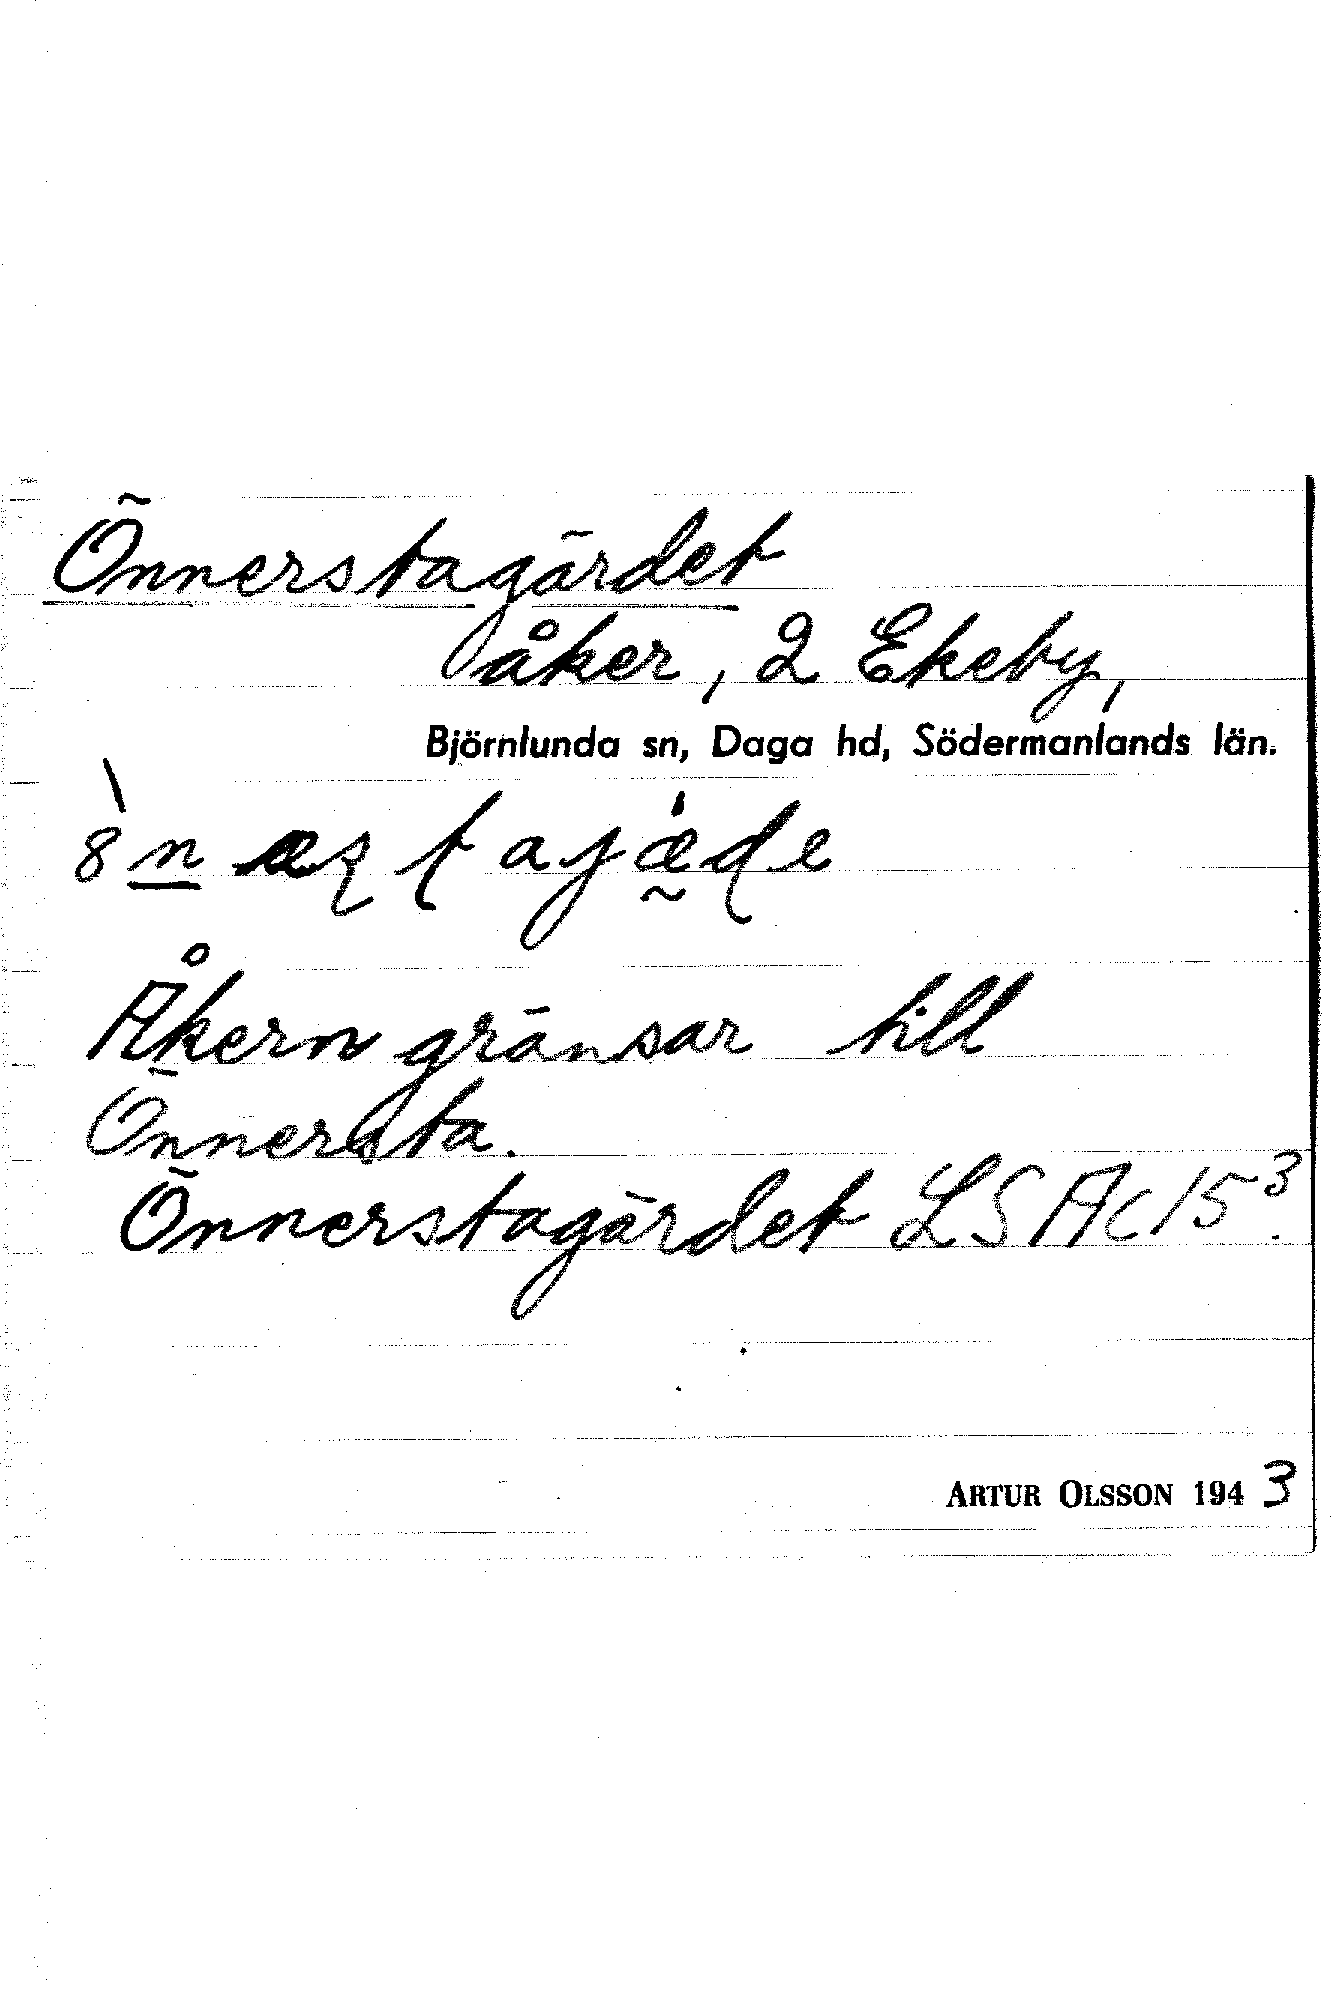 Önnerstagärdet
åker, 2 Ekeby,
Björnlunda sn, Daga hd, Södermanlands län.
Åkern gränsar till
Önnersta.
Önnerstagärdet LSA C 15³.
ARTUR OLSSON 1943